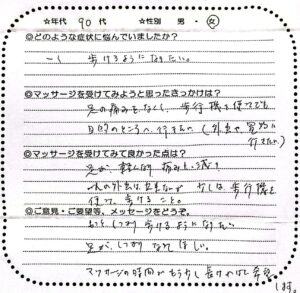 ☆年代 90代 ☆性別 男・女
◎どのような症状に悩んでいましたか?
歩けるようになりたい。
◎マッサージを受けてみようと思ったきっかけは?
足の痛みをなくし、歩行機を使ってでも
目的のところへ行きたい(外出や
行きたい)
◎マッサージを受けてみて良かった点は?
足が、 痛みも減り
外出は 少しは歩行機を
使って、歩けること。
◎ご意見・ご要望等、メッセージをどうぞ。
もっとしっかり歩けるようになりたい
足が、しっかりなってほしい。
マッサージの時間がもう少し長ければと希望
します。